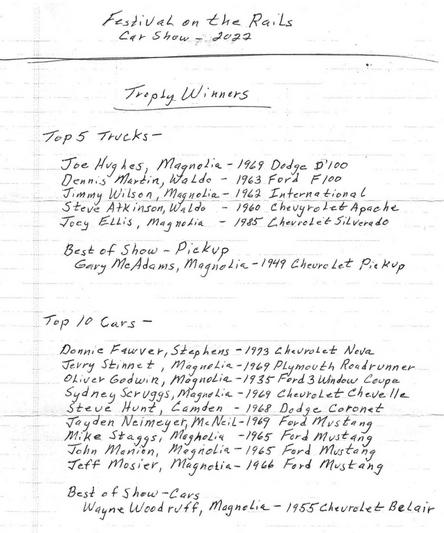 Festival on the Rails
Car Show - 2022
Trophy Winners
Top 5 Trucks -
Joe Hughes, Magnolia - 1969 Dodge D'100
Dennis Martin, Waldo - 1963 Ford F100
Jimmy Wilson, Magnolia - 1962 International
Steve Atkinson, Waldo - 1960 Chevyrolet Apache
Joey Ellis, Magnolia - 1985 Chevrolet Silverado
Best of Show - Pickup
Gary McAdams, Magnolia - 1949 Chevrolet Pickup
Top 10 Cars -
Donnie Fawver, Stephens - 1973 Chevrolet Nova
Jerry Stinnet, Magnolia - 1969 Plymouth Roadrunner
Oliver Godwin, Magnolia - 1935 Ford 3 Window Coupe
Sydney Scruggs, Magnolia - 1969 Chevrolet Chevelle
Steve Hunt, Camden - 1968 Dodge Coronet
Jayden Neimeyer, McNeil - 1969 Ford Mustang
Mike Staggs, Magnolia - 1965 Ford Mustang
John Manion, Magnolia - 1965 Ford Mustang
Jeff Mosier, Magnolia - 1966 Ford Mustang
Best of Show - Cars
Wayne Woodruff, Magnolia - 1955 Chevrolet Belair